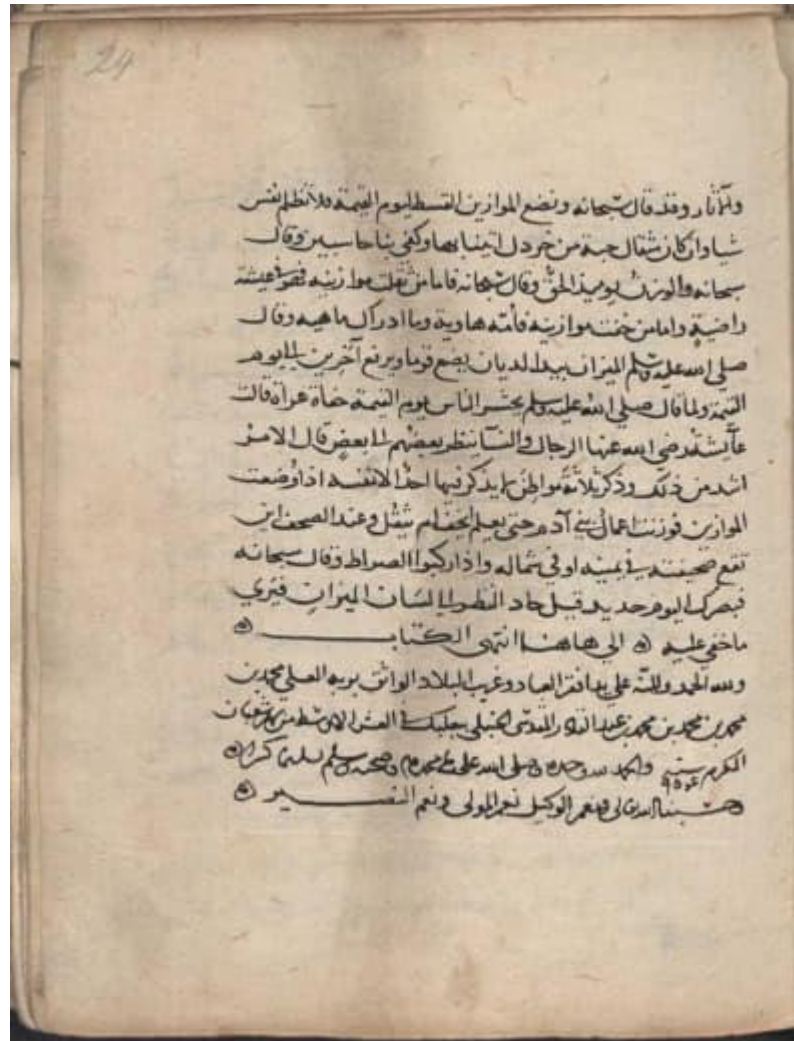 24
والآثار وقد قال سبحانه ونضع الموازين القسط ليوم القيمة فلا تظلم نفس
شيا وان كان مثقال حبة من خردل اتينا بها وكفى بنا حاسبين وقال
سبحانه والوزن يوميذ الحق وقال سبحانه فاما من ثقلت موازينه فهو في عيشة
راضية واما من خفت موازينه فأمه هاوية وما ادراك ماهيه وقال
صلى الله عليه وسلم الميزان بيد الديان يضع قوما ويرفع آخرين الى يوم
القيمة ولما قال صلى الله عليه وسلم يحشر الناس يوم القيمة حفاة عراة قالت
عائشة رضي الله عنها الرجال والنسا ينظر بعضهم الى بعض قال الامر
اشد من ذلك وذكر ثلاثة مواطن لا يذكر فيها احد الا نفسه اذا وضعت
الموازين فوزنت اعمال بني آدم حتى يعلم ايخف ام يثقل وعند الصحف اين
تقع صحيفته في يمينه او في شماله واذا ركبوا الصراط وقال سبحانه
فبصرك اليوم حديد قيل حاد النظر الى لسان الميزان فيري
ما خفي عليه ۞ الي هاهنا انتهى الكتاب ۞
ولله الحمد والمنة علي يد افقر العباد وغريب البلاد الواثق بربه العلي محمد بن
محمد بن محمد بن محمد بن عبد القادر المقدسي الحنبلي ببعلبك في العشر الاوسط من شعبان
المكرم سنة والحمد لله وحده وصلى الله على محمد وصحبه وسلم تسليما كثيرا ۞
حسبنا الله تعالى ونعم الوكيل نعم المولى ونعم النصير ۞